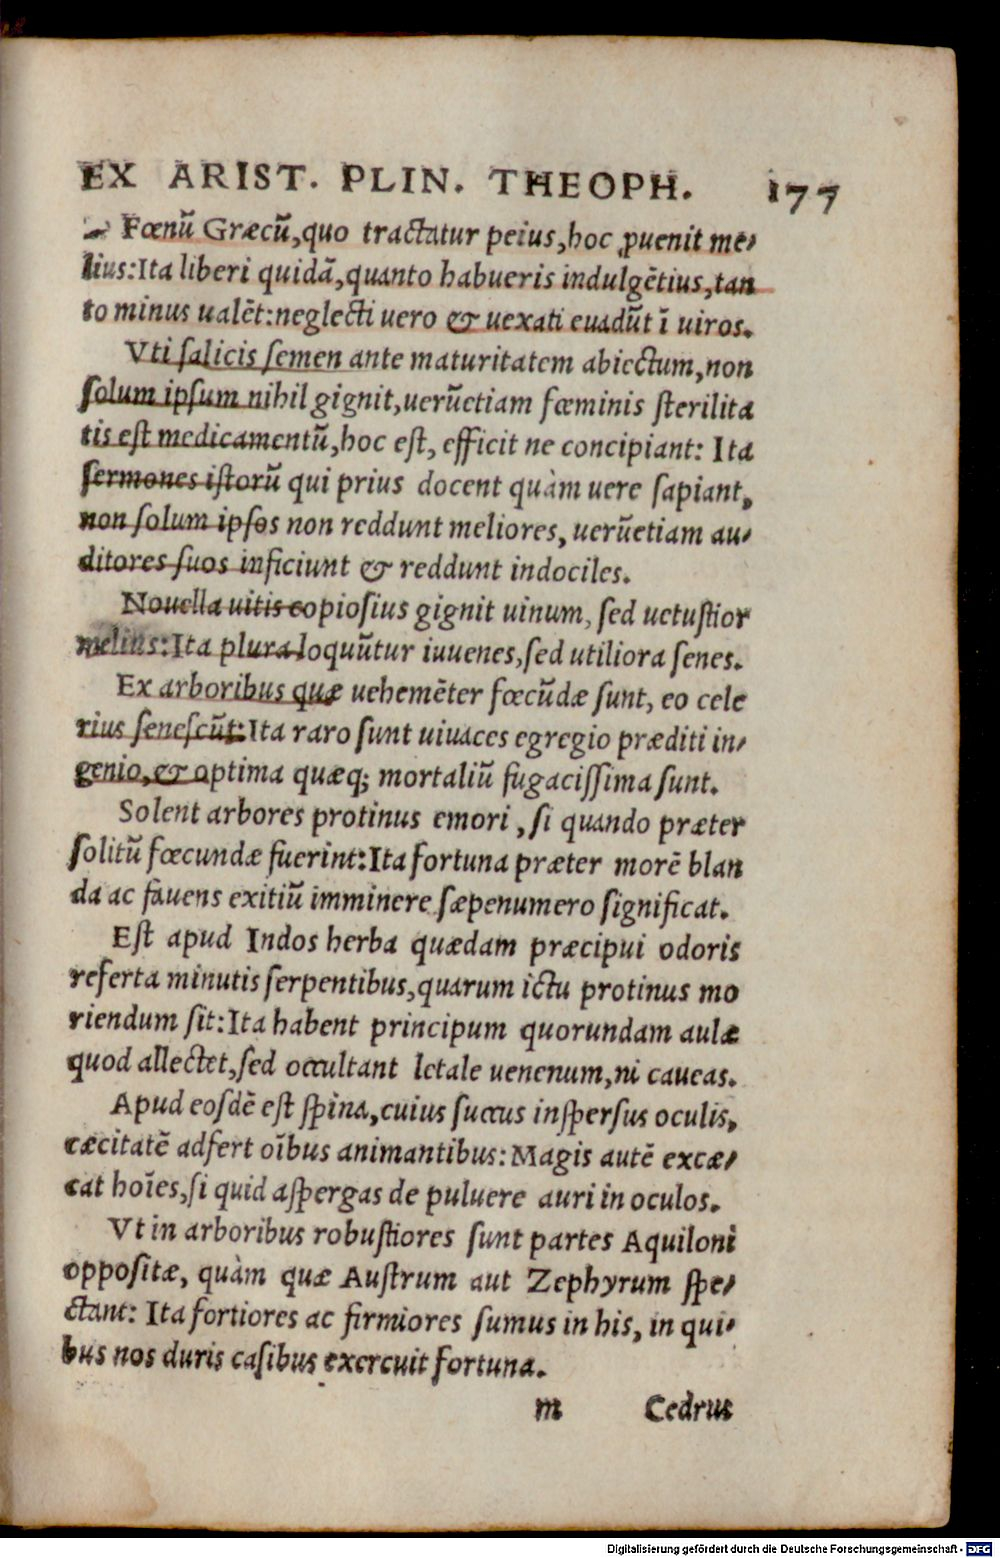 EX ARIST. PLIN. THEOPH. 177
Fœnũ Græcũ,quo tractatur peius,hoc ꝓuenit me⸗
lius:Ita liberi quidã,quanto habueris indulgẽtius,tan
to minus ualẽt:neglecti uero & uexati euadũt ĩ uiros.
Vti ſalicis ſemen ante maturitatem abiectum,non
ſolum ipſum nihil gignit,uerũetiam fœminis ſterilita
tis eſt medicamentũ,hoc eſt, efficit ne concipiant: Ita
ſermones iſtorũ qui prius docent quàm uere ſapiant,
non ſolum ipſos non reddunt meliores, uerũetiam au⸗
ditores ſuos inficiunt & reddunt indociles.
Nouella uitis copioſius gignit uinum, ſed uetuſtior
melius:Ita plura loquũtur iuuenes,ſed utiliora ſenes.
Ex arboribus quæ uehemẽter fœcũdæ ſunt, eo cele
rius ſeneſcũt:Ita raro ſunt uiuaces egregio præditi in⸗
genio,& optima quæq; mortaliũ fugaciſſima ſunt.
Solent arbores protinus emori , ſi quando præter
ſolitũ fœcundæ fuerint:Ita fortuna præter morẽ blan
da ac fauens exitiũ imminere ſæpenumero ſignificat.
Eſt apud Indos herba quædam præcipui odoris
referta minutis ſerpentibus,quarum ictu protinus mo
riendum ſit:Ita habent principum quorundam aulæ
quod allectet,ſed occultant letale uenenum,ni caueas.
Apud eoſdẽ eſt ſpina,cuius ſuccus inſperſus oculis,
cæcitatẽ adfert oĩbus animantibus:Magis autẽ excæ⸗
cat hoĩes,ſi quid aſpergas de puluere auri in oculos.
Vt in arboribus robuſtiores ſunt partes Aquiloni
oppoſitæ, quàm quæ Auſtrum aut Zephyrum ſpe⸗
ctant: Ita fortiores ac firmiores ſumus in his, in qui⸗
bus nos duris caſibus exercuit fortuna.
m Cedrus
Digitalisierung gefördert durch die Deutsche Forschungsgemeinschaft - DFG